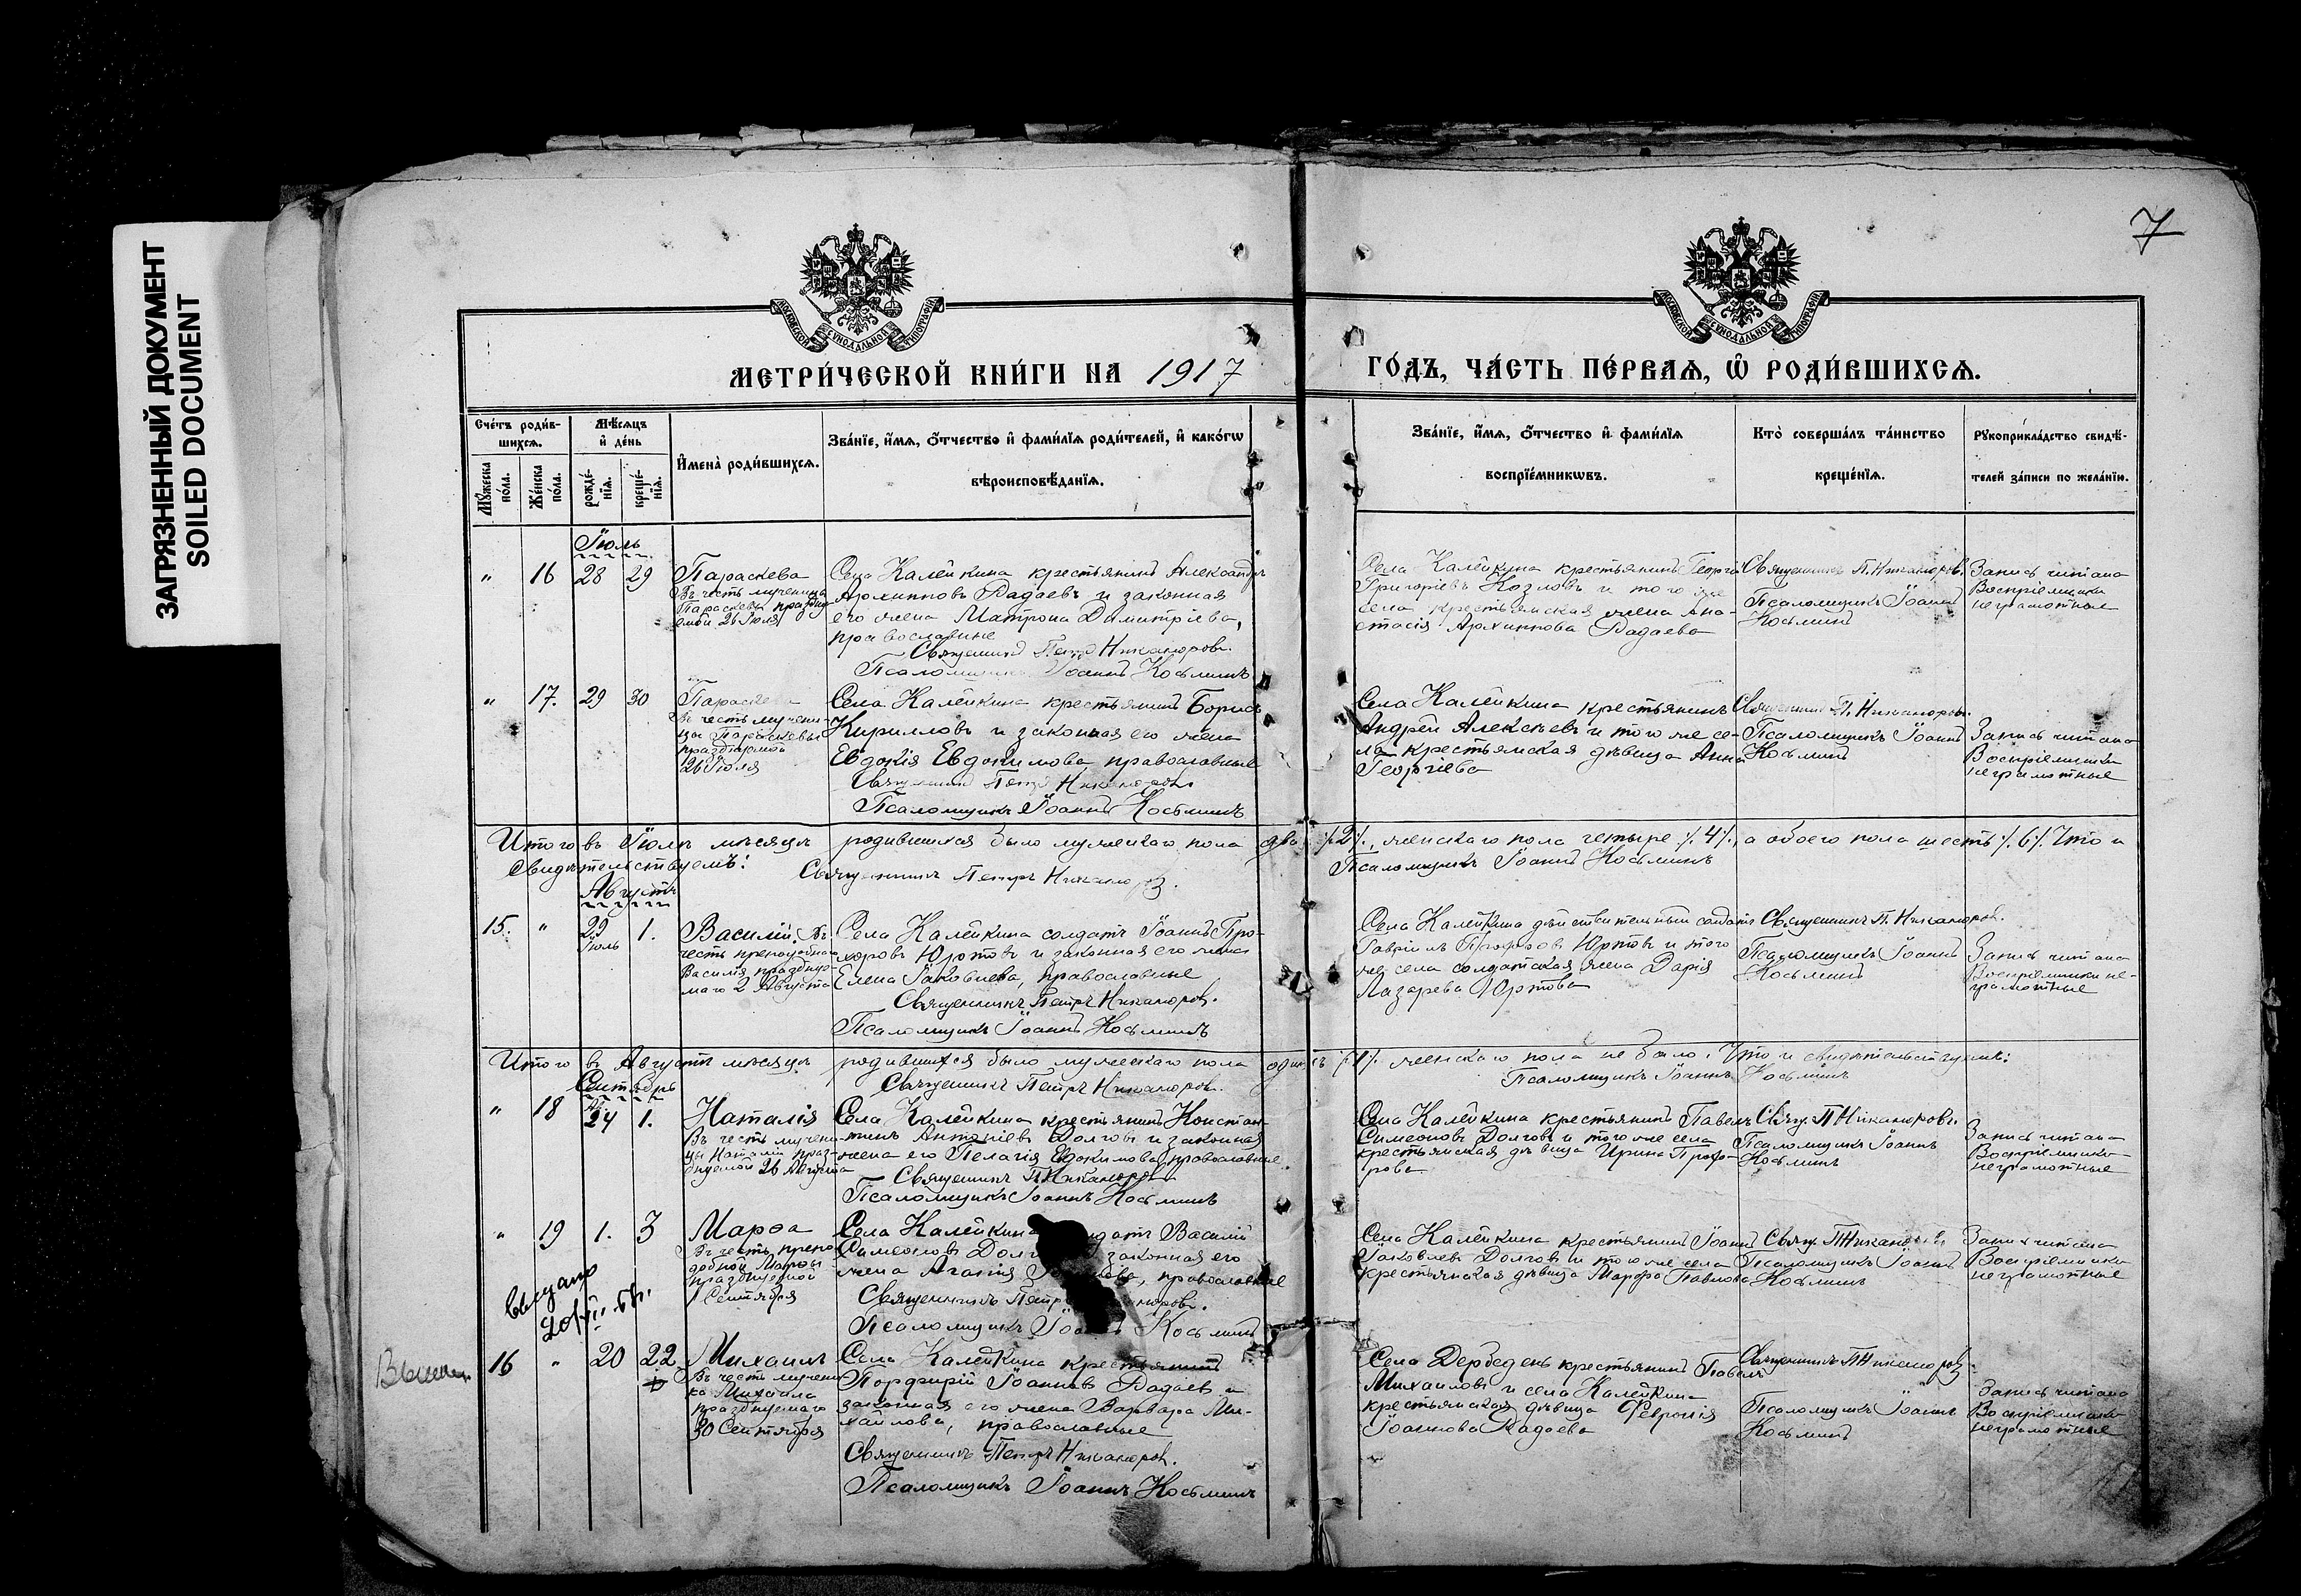 ЗАГРЯЗНЕННЫЙ ДОКУМЕНТ
SOILED DOCUMENT
7
МОСКОВСКОЙ СѴНОДАЛЬНОЙ ТИПОГРАФІИ
МОСКОВСКОЙ СѴНОДАЛЬНОЙ ТИПОГРАФІИ
МЕТРИ́ЧЕСКОЙ КНИ́ГИ НА 1917 ГО́ДЪ, ЧА́СТЬ ПЕ́РВАѦ, Ѽ РОДИ́ВШИХСѦ.
Сче́тъ роди́в-
шихсѧ.
Мѣ́сѧцъ
и҆ де́нь
Мꙋ́жеска
по́ла.
Же́нска
по́ла.
рожде́-
нїѧ.
креще́-
нїѧ.
И҆мена̀ роди́вшихсѧ.
Зва́нїе, и҆́мѧ, ѻ҆́тчество и҆ фами́лїѧ роди́телей, и҆ како́гѡ
вѣроисповѣ́данїѧ.
Зва́нїе, и҆́мѧ, ѻ҆́тчество и҆ фами́лїѧ
воспрїе́мникѡвъ.
Кто̀ соверша́лъ та́инство
креще́нїѧ.
Рꙋкоприкла́дство свидѣ́-
телей за́писи по жела́нїю.
Іюль
" 16 28 29
Параскева
Въ честь мученицы
Параскевы празднуемой 26 Іюля
Села Калейкина крестьянинъ Александръ
Архиповъ Радаевъ и законная
его жена Матрона Димитріева,
православные
Священникъ Петръ Никаноровъ.
Псаломщикъ Іоаннъ Косьминъ
Села Калейкина крестьянинъ Георгій
Григоріевъ Козловъ и того же
села крестьянская жена Ана-
стасія Архипова Радаева
Священникъ П. Никаноровъ.
Псаломщикъ Іоаннъ
Косьминъ
Запись читана
Воспріемники
неграмотные
" 17. 29 30
Параскева
Въ честь мучени-
цы Параскевы
празднуемой
26 Іюля
Села Калейкина крестьянинъ Борисъ
Кирилловъ и законная его жена
Евдокія Евдокимова православные
Священникъ Петръ Никаноровъ
Псаломщикъ Іоаннъ Косьминъ
Села Калейкина крестьянинъ
Андрей Алексѣевъ и того же се-
ла крестьянская дѣвица Анна
Георгіева
Священникъ П. Никаноровъ.
Псаломщикъ Іоаннъ
Косьминъ
Запись читана
Воспріемники
неграмотные
Итого въ Іюлѣ мѣсяцѣ родившихся было мужескаго пола два ٪2٪, женскаго пола четыре ٪4٪, а обоего пола шесть ٪6٪ Что и
свидѣтельствуемъ: Священникъ Петръ Никаноровъ. Псаломщикъ Іоаннъ Косьминъ
Августъ
15. " 29 1.
Іюль
Василій. Въ
честь преподобнаго
Василія праздную-
маго 2 Августа
Села Калейкина солдатъ Іоаннъ Про-
хоровъ Юртовъ и законная его жена
Елена Іаковлева, православные
Священникъ Петръ Никаноровъ.
Псаломщикъ Іоаннъ Косьминъ
Села Калейкина дѣйствительный солдатъ
Гавріилъ Юртовъ и того
же села солдатская жена Дарія
Лазарева Юртова
Священникъ П. Никаноровъ.
Псаломщикъ Іоаннъ
Косьминъ
Запись читана
Воспріемники не-
грамотные
Итого въ Августѣ мѣсяцѣ родившихся было мужескаго пола одинъ ٪1٪ женскаго пола не было. Что и свидѣтельствуемъ:
Священникъ Петръ Никаноровъ. Псаломщикъ Іоаннъ Косьминъ
Сентябрь
" 18 24 1.
Наталія
Въ честь мучени-
цы Наталіи праз-
днуемой 26 Августа
Села Калейкина крестьянинъ Констан-
тинъ Антоніевъ Долговъ и законная
жена его Пелагія Евдокимова, православные.
Священникъ П. Никаноровъ
Псаломщикъ Іоаннъ Косьминъ
Села Калейкина крестьянинъ Павелъ
Симеоновъ Долговъ и того же села
крестьянская дѣвица Ирина Прохо-
рова
Свящ. П Никаноровъ.
Псаломщикъ Іоаннъ
Косьминъ
Запись читана
Воспріемники
неграмотные
" 19 1. 3
Марѳа
Въ честь препо-
добной Марѳы
празднуемой
1 Сентября
Села Калейкина солдатъ Василій
Симеоновъ законная его
жена Агапія православные
Священникъ Петръ
Псаломщикъ Іоаннъ Косьминъ
Села Калейкина крестьянинъ Іоаннъ
Іаковлевъ Долговъ и того же села
крестьянская дѣвица Марфа Павлова
Свящ. П Никаноровъ
Псаломщикъ Іоаннъ
Косьминъ
Запись читана
Воспріемники
неграмотные
выдано
16 " 20 22
Михаилъ
Въ честь мучени-
ка Михаила
празднуемаго
30 Сентября
Села Калейкина крестьянинъ
Порфирій Іоанновъ Радаевъ и
законная его жена Варвара Ми-
хайлова, православные
Священникъ Петръ Никаноровъ.
Псаломщикъ Іоаннъ Косьминъ
Села Дербедень крестьянинъ Павелъ
Михаиловъ и села Калейкина
крестьянская дѣвица Февронія
Іоаннова Радаева
Священникъ П Никаноровъ.
Псаломщикъ Іоаннъ
Косьминъ
Запись читана
Воспріемники
неграмотные